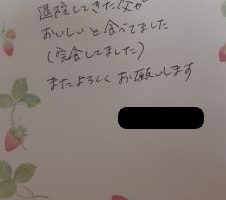 退院してきた父が
おいしいと食べてました
(完食してました)
またよろしくお願いします